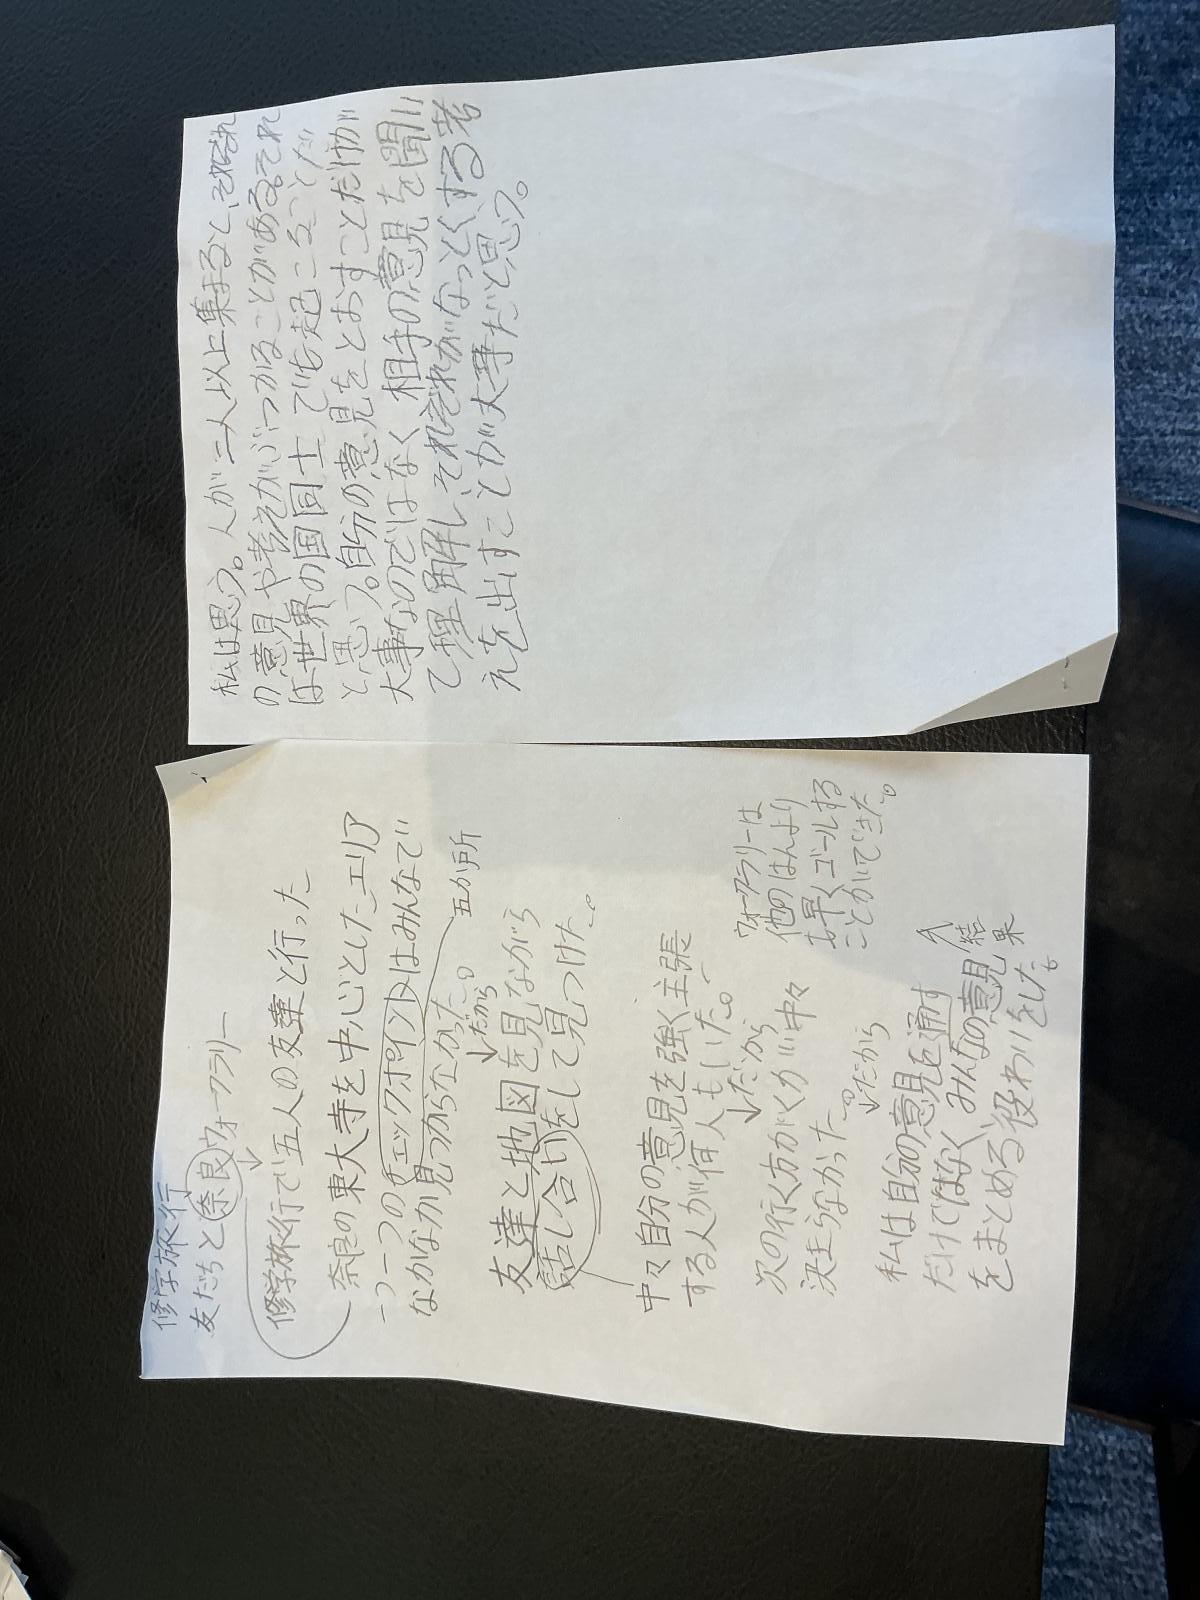 修学旅行
友だちと奈良ウォークラリー
修学旅行で五人の友達と行った
奈良の東大寺を中心としたエリア
一つ一つのチェックポイントはみんなでい
なかなか見つからなかった。
五か所
だから
友達と地図を見ながら
話し合いをして見つけた。
中々自分の意見を強く主張
する人が何人もいた。
だから
次の行く方がくが中々
決まらなかった。
だから
私は自分の意見を通す
だけではなくみんなの意見
をまとめる役わりをした。
結果
ウォークラリーは
他のはんより
も早くゴールする
ことができた。
私は思う。人が二人以上集まると、それぞれ
の意見や考えがぶつかることがある。それ
は世界の国同士でも起こることだ
と思う。自分の意見をとおすことだけが
大事なのではなく相手の意見を聞い
て理解し、それぞれがなっとくする考
えを出すことが大事だと思う。